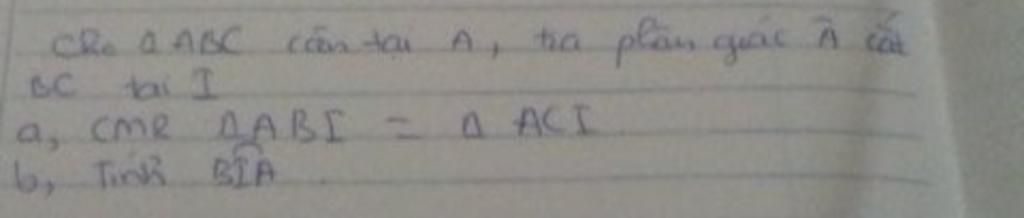 Cho Δ ABC cân tại A, tia phân giác Â cắt
BC tại I
a, CMR ΔABI = Δ ACI
b, Tính BÎA